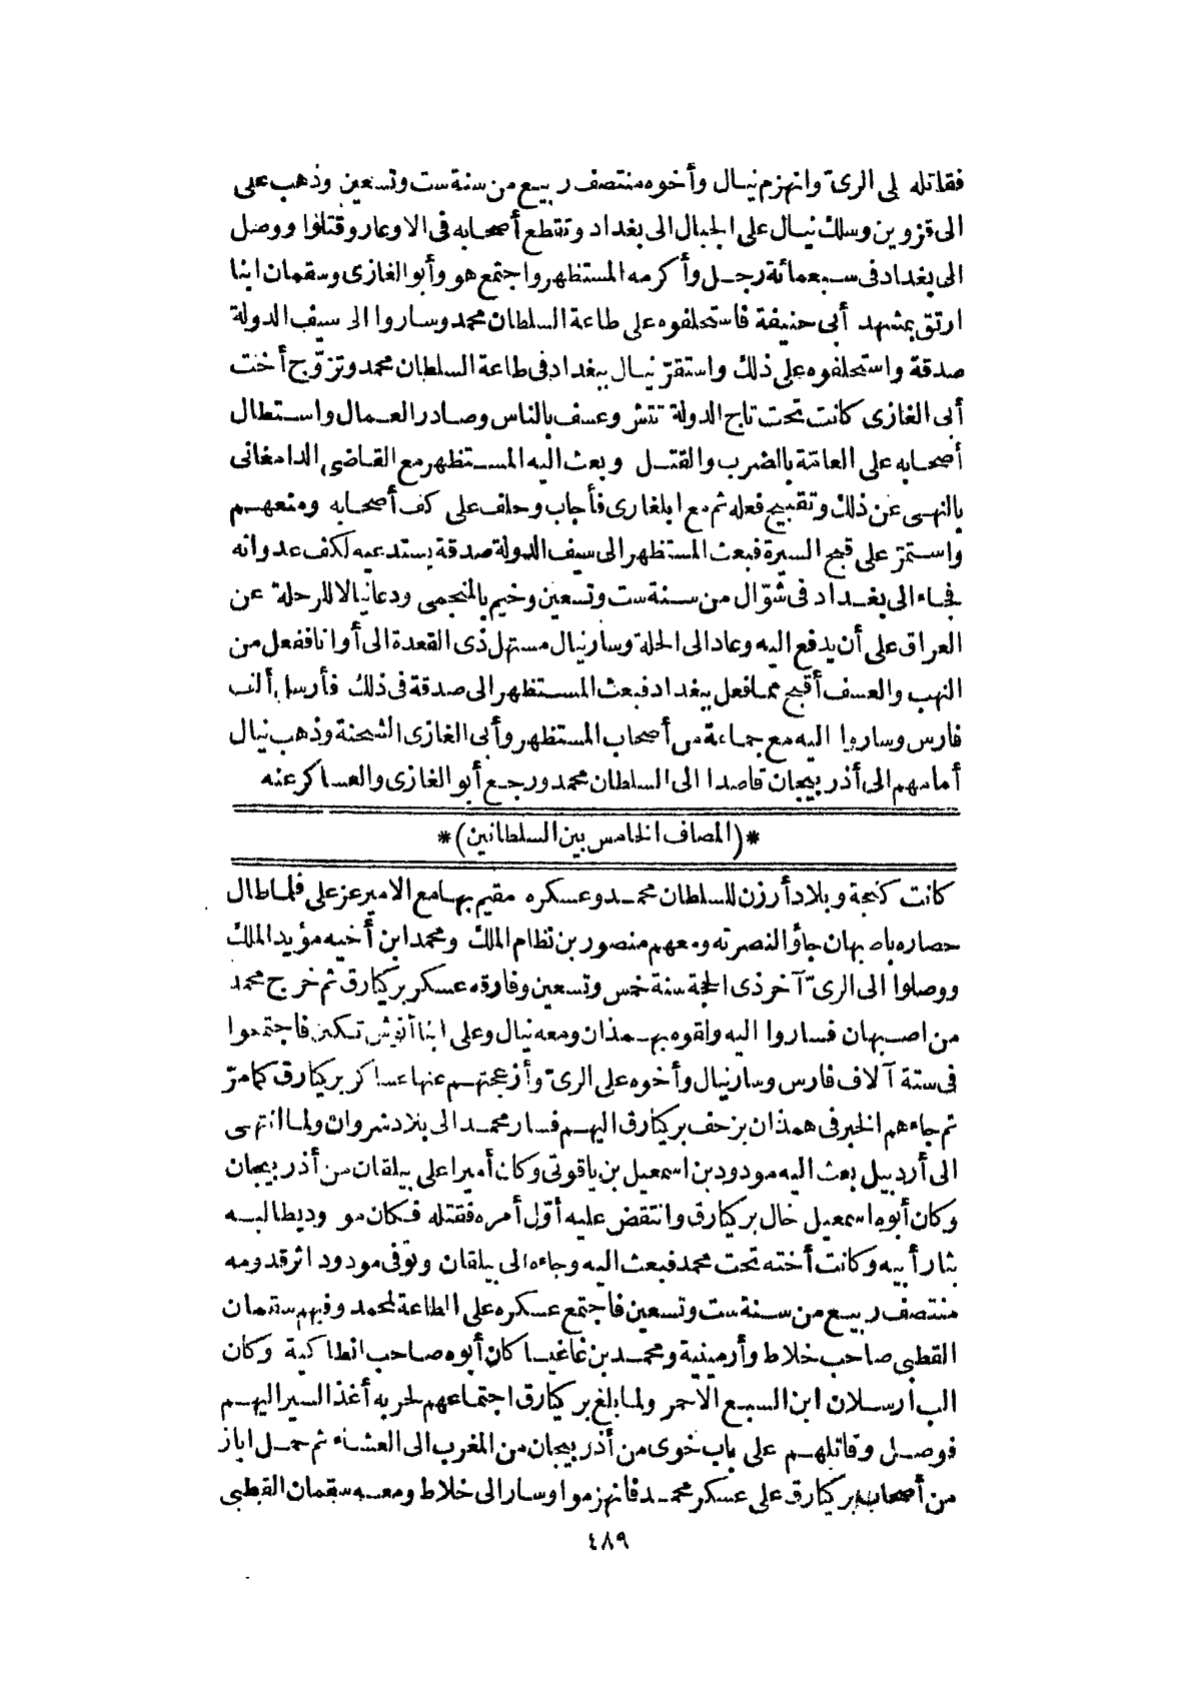 فقاتله لى الرىّ وانهزم نيال وأخوه منتصف ربيع من سنة ست وتسعين وذهب على
الى قزوين وسلك نيال على الجبال الى بغداد وتقطع أصحابه فى الاوعار وقتلوا ووصل
الى بغداد فى سبعمائة رجل وأكرمه المستظهر واجتمع هو وأبو الغازى وسقمان ابنا
ارتق بمشهد أبى حنيفة فاستحلفوه على طاعة السلطان محمد وساروا الى سيف الدولة
صدقة واستحلفوه على ذلك واستقرّ نيال ببغداد فى طاعة السلطان محمد وتزوّج أخت
أبى الغازى كانت تحت تاج الدولة تتش وعسف بالناس وصادر العمال واستطال
أصحابه على العامّة بالضرب والقتل وبعث اليه المستظهر مع القاضى الدامغانى
بالنهى عن ذلك وتقبيح فعله ثم مع ايلغارى فأجاب وحلف على كف أصحابه ومنعهم
واستمرّ على قبح السيرة فبعث المستظهر الى سيف الدولة صدقة يستدعيه لكف عدوانه
فجاء الى بغداد فى شوّال من سنة ست وتسعين وخيم بالمنجمى ودعا نيالا للرحلة عن
العراق على أن يدفع اليه وعاد الى الحلة وسار نيال مستهل ذى القعدة الى أوانا ففعل من
النهب والعسف أقبح مما فعل ببغداد فبعث المستظهر الى صدقة فى ذلك فأرسل ألف
فارس وساروا اليه مع جماعة من أصحاب المستظهر وأبى الغازى الشحنة وذهب نيال
أمامهم الى أذربيجان قاصدا الى السلطان محمد ورجع أبو الغازى والعساكر عنه
*(المصاف الخامس بين السلطانين)*
كانت كنجة وبلاد أرزن للسلطان محمد وعسكره مقيم بها مع الامير عزعلى فلما طال
حصاره باصبهان جاؤا لنصرته ومعهم منصور بن نظام الملك ومحمد ابن أخيه مؤيد الملك
ووصلوا الى الرىّ آخر ذى الحجة سنة خمس وتسعين وفارقه عسكر بركيارق ثم خرج محمد
من اصبهان فساروا اليه ولقوه بهمذان ومعه نيال وعلى ابنا أنوش تكين فاجتمعوا
فى ستة آلاف فارس وسار نيال وأخوه على الرىّ وأزعجتهم عنها عساكر بركيارق كما مرّ
ثم جاءهم الخبر فى همذان بزحف بركيارق اليهم فسار محمد الى بلاد شروان ولما انتهى
الى أردبيل بعث اليه مودود بن اسمعيل بن ياقوتى وكان أميرا على بيلقان من أذربيجان
وكان أبوه اسمعيل خال بركيارق وانتقض عليه أوّل أمره فقتله فكان مو وديطالبه
بثار أبيه وكانت أخته تحت محمد فبعث اليه وجاءه الى بيلقان وتوفى مودود اثر قدومه
منتصف ربيع من سنة ست وتسعين فاجتمع عسكره على الطاعة لمحمد وفيهم سقمان
القطبى صاحب خلاط وأرمينية ومحمد بن غاغيسا كان أبوه صاحب انطاكية وكان
الب ارسلان ابن السبع الاحمر ولما بلغ بركيارق اجتماعهم لحربه أغذ السير اليهم
فوصل وقاتلهم على باب خوى من أذربيجان من المغرب الى العشاء ثم حمل اياز
من أصحاب بركيارق على عسكر محمد فانهزموا وسار الى خلاط ومعه سقمان القبطبى
٤٨٩